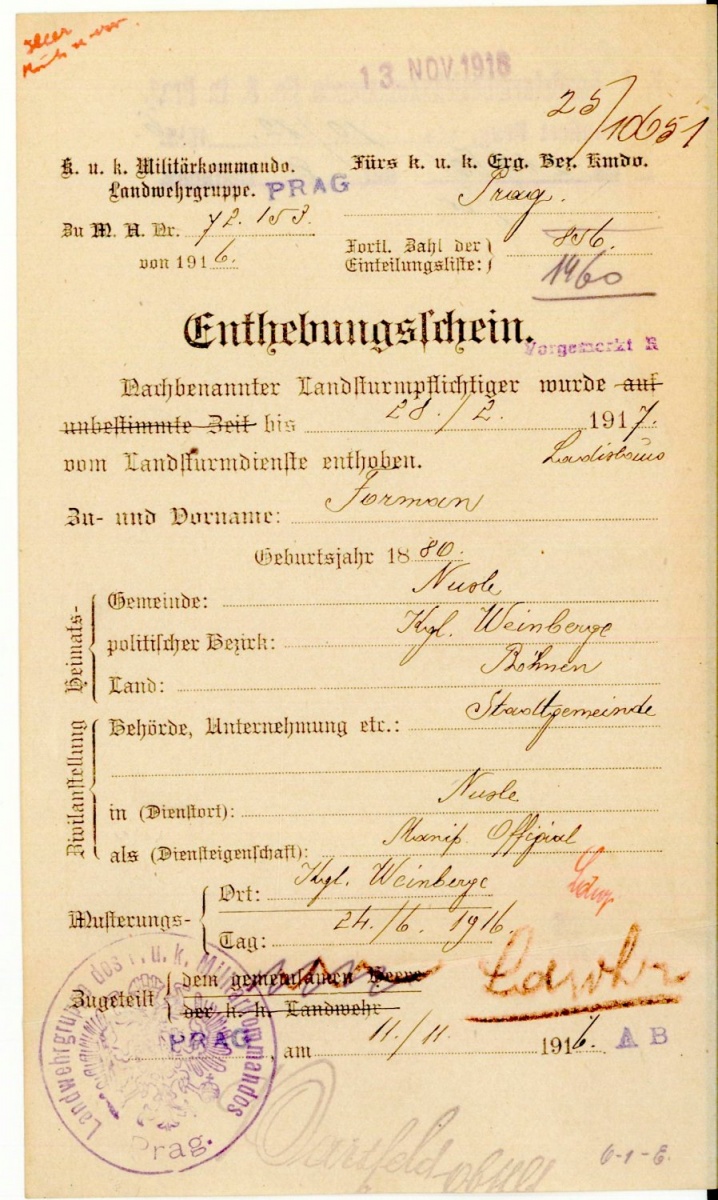 13. NOV. 1916
25/10651
K. u. k. Militärkommando. Fürs k. u. k. Erg. Bez. Kmdo.
Landwehrgruppe. PRAG Prag.
Zu M. A. Nr. 72.153.
von 1916. Fortl. Zahl der Einteilungsliste: 856.
1960
Enthebungsschein.
Vorgemerkt R
Nachbenannter Landsturmpflichtiger wurde auf
unbestimmte Zeit bis 28./2. 1917.
vom Landsturmdienste enthoben.
Ladislaus
Zu- und Vorname: Forman
Geburtsjahr 1880.
Heimats-
Gemeinde: Nusle
politischer Bezirk: Kgl. Weinberge
Land: Böhmen
Zivilanstellung
Behörde, Unternehmung etc.: Stadtgemeinde
in (Dienstort): Nusle
als (Diensteigenschaft): Manip. Offizial
Musterungs-
Ort: Kgl. Weinberge
Tag: 24./6. 1916.
Zugeteilt
dem gemeinsamen Heere
der k. k. Landwehr
Ldwhr
PRAG, am 11./11. 1916. AB
Landwehrgruppe des k. u. k. Militärkommandos
Prag.
6-1-E.